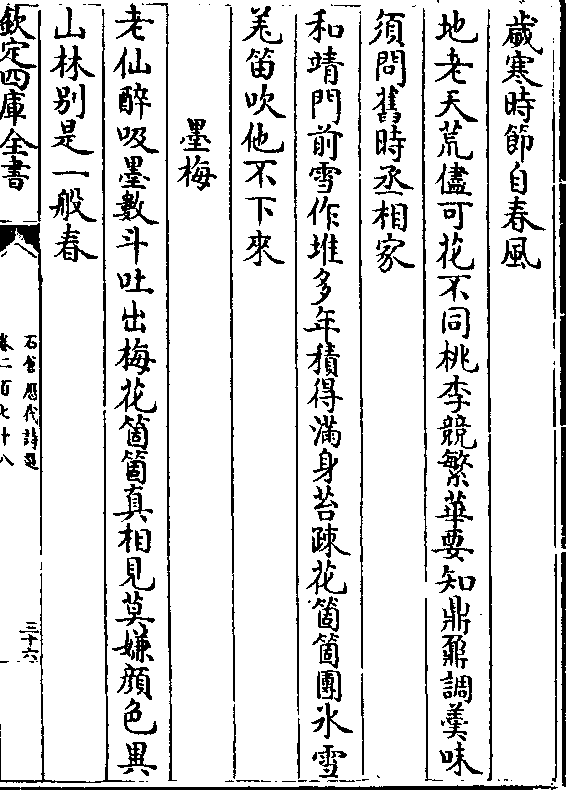 歲寒時節自春風
地老天荒儘可花不同桃李競繁華要知鼎鼐調羮味
須問舊時丞相家
和靖門前雪作堆多年積得滿身苔疎花箇箇團氷雪
羗笛吹他不下來
墨梅
老仙醉吸墨數斗吐出梅花箇箇真相見莫嫌顔色異
山林别是一般春
欽定四庫全書
石倉歷代詩選
卷二百七十八
三十六